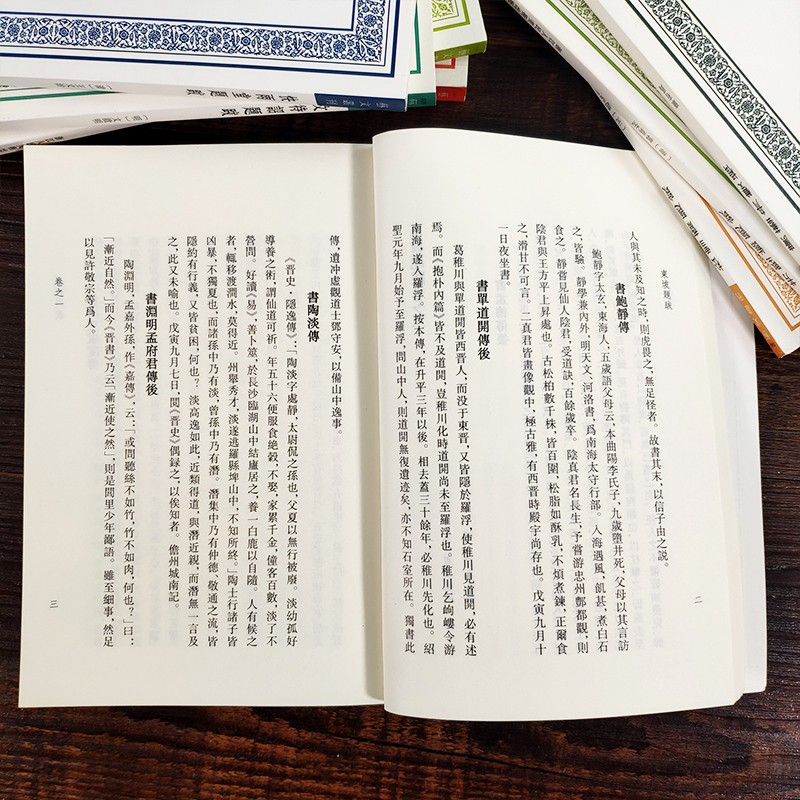 東坡題跋
人與其未及知之時，則虎畏之，無足怪者。故書其末，以信子由之說。
書鮑靜傳
鮑靜字太玄，東海人，五歲語父母云，本曲陽李氏子，九歲墮井死，父母以其言訪
之，皆驗。靜學兼內外，明天文、河洛書，爲南海太守行部。入海遇風，飢甚，煮白石
食之。靜嘗見仙人陰君，受道訣，百餘歲卒。陰真君名長生，予嘗游忠州酆都觀，則
陰君與王方平上昇處也。古松柏數千株，皆百圍，松脂如酥乳，不煩煮鍊，正爾食
之，滑甘不可言。二真君皆畫像觀中，極古雅，有西晉時殿宇尚存也。戊寅九月十
一日夜坐書。
書單道開傳後
葛稚川與單道開皆西晉人，而没于東晉，又皆隱於羅浮，使稚川見道開，必有述
焉。而《抱朴內篇》皆不及道開，豈稚川化時道開尚未至羅浮也。稚川乞岣嶁令游
南海，遂入羅浮。按本傳，在升平三年以後。相去蓋三十餘年，必稚川先化也。紹
聖元年九月始予至羅浮，問山中人，則道開無復遺迹矣，亦不知石室所在。獨書此
二
傳，遺冲虛觀道士鄧守安，以備山中逸事。
書陶淡傳
《晉史·隱逸傳》：「陶淡字處靜，太尉侃之孫也，父夏以無行被廢。淡幼孤好
導養之術，謂仙道可祈。年五十六便服食絕穀，不娶，家累千金，僮客百數，淡了不
營問。好讀《易》，善卜筮，於長沙臨湖山中結廬居之，養一白鹿以自隨。人有候之
者，輒移渡澗水，莫得近。州舉秀才，淡遂逃羅縣埤山中，不知所終。」陶士行諸子皆
凶暴，不獨夏也，而諸孫中乃有淡，曾孫中乃有潛。潛集中乃有仲德、敬通之流，皆
隱約有行義，又皆貧困，何也？淡高逸如此，近類得道，與潛近親，而潛無一言及
之，此又未喻也。戊寅九月七日，閱《晉史》偶錄之，以俟知者。儋州城南記。
書淵明孟府君傳後
陶淵明，孟嘉外孫，作《嘉傳》，云：「或問聽絲不如竹，竹不如肉，何也？」曰：
「漸近自然。」而今《晉書》乃云「漸近使之然」，則是閭里少年鄙語。雖至細事，然足
以見許敬宗等爲人。
卷之一
三
文待詔題跋